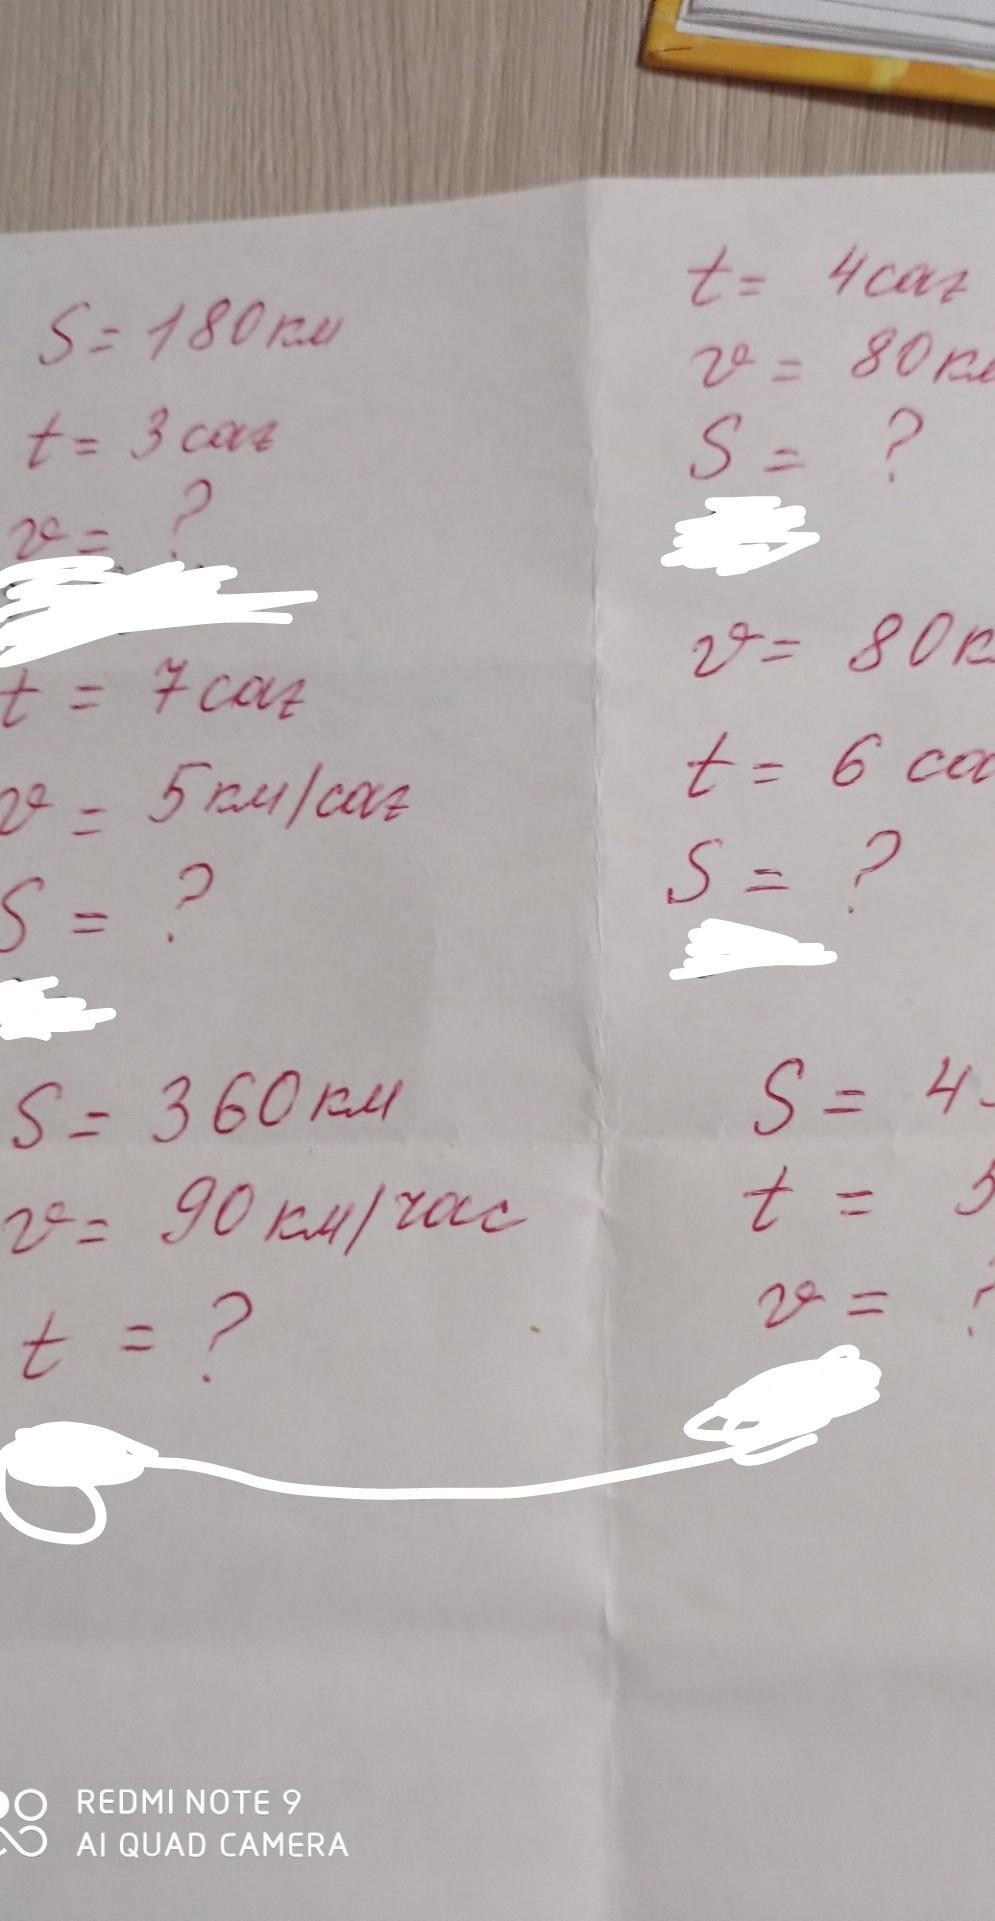 S = 180 км
t = 3 саг
v = ?
t = 7 саг
v = 5 км/саг
S = ?
S = 360 км
v = 90 км/час
t = ?
t = 4 саг
v = 80 км
S = ?
v = 80 к
t = 6 са
S = ?
S = 4
t = 5
v = ?
REDMI NOTE 9
AI QUAD CAMERA